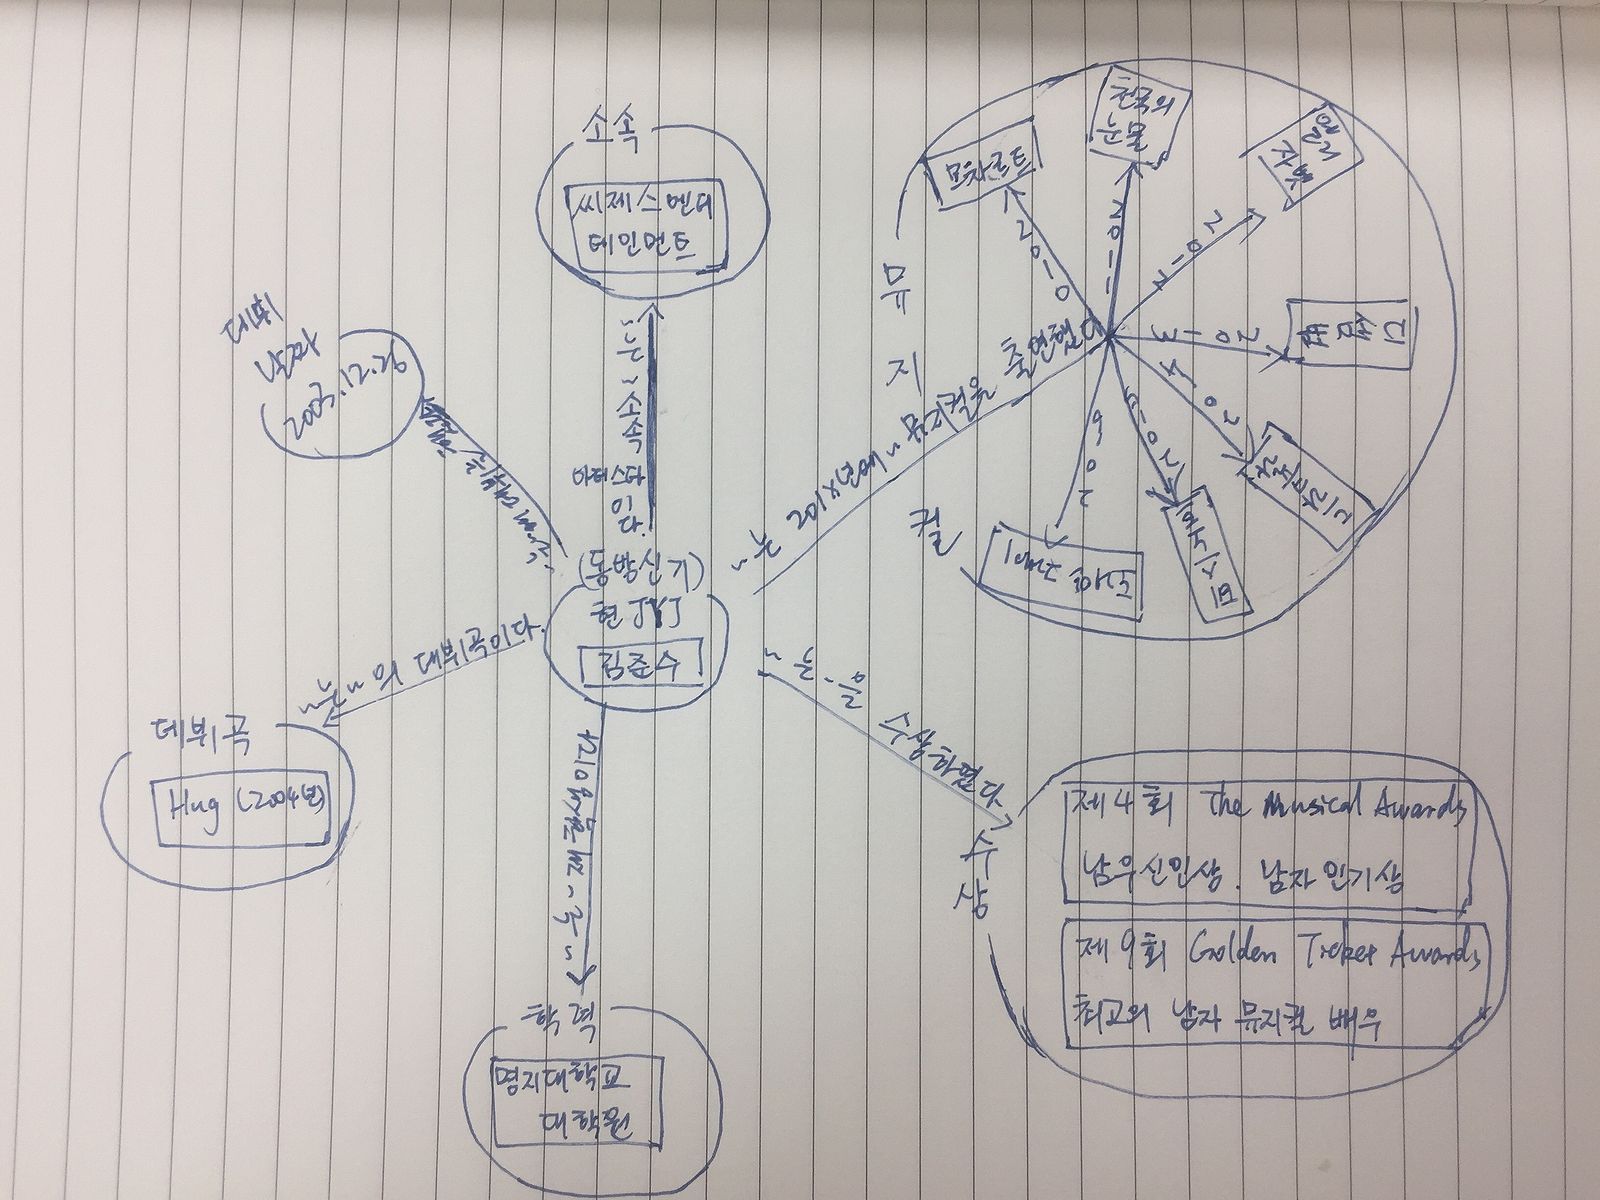 소속
씨제스엔터
테인먼트
~는 ~소속
아티스타
이다.
데뷔
날짜
2003.12.26
(동방신기)
현 JYJ
김준수
~는 201X년에 ~ 뮤지컬을 출연했다
뮤지컬
모차르트
2010
천국의
눈물
2011
엘리
자벳
2012
디셈버
2013
드라큘라
2014
2015
2016
도리안 그레이
~는 ~의 데뷔곡이다.
데뷔곡
Hug (2004년)
학력
명지대학교
대학원
~는 ~을 수상하였다
수상
제4회 The Musical Awards
남우신인상. 남자인기상
제9회 Golden Ticket Awards
최고의 남자 뮤지컬 배우